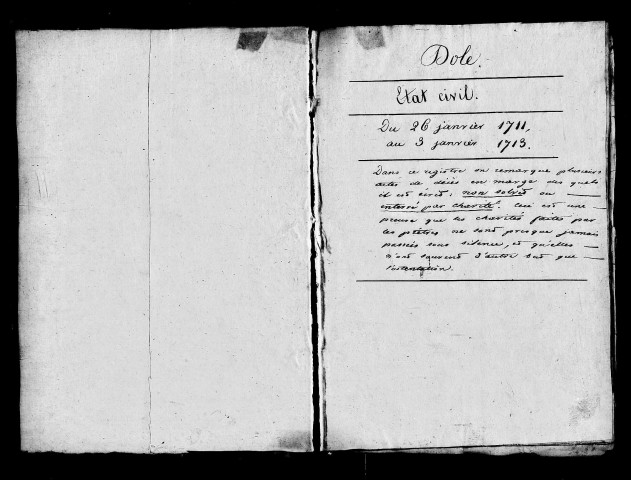 Dole.
Etat civil.
Du 26 janvier 1711,
au 3 janvier 1713.
Dans ce registre on remarque plusieurs
actes de décès en marge des quels
il est écrit : non solvit ou
enterré par charité. Ceci est une
preuve que les charités faites par
les prêtres ne sont presque jamais
passées sous silence, et qu'elles
n'ont souvent d'autre but que
l'ostentation.